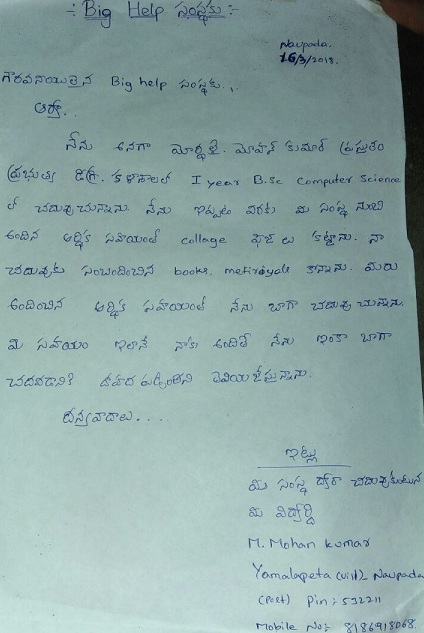 :- Big Help సంస్థకు :-
Naupada.
16/3/2018.
గౌరవనీయులైన Big help సంస్థకు..
ఆర్యా..
నేను అనగా మోహన్ కుమార్ ప్రస్తుతం
ప్రభుత్వ డిగ్రీ కళాశాలలో I year B.Sc Computer Science
లో చదువుచున్నాను. నేను ఇప్పటి వరకు మీ సంస్థ నుంచి
అందిన ఆర్థిక సహాయంతో collage ఫీజు లు కట్టాను. నా
చదువుకు సంబందించిన books, metirayals కొన్నాను. మీరు
అందించిన ఆర్థిక సహాయంతో నేను బాగా చదువు చున్నాను.
మీ సహాయం ఇలానే నాకు అందితే నేను ఇంకా బాగా
చదవడానికి తెలియజేస్తున్నాను.
ధన్యవాదాలు...
ఇట్లు
మీ సంస్థ ద్వారా చదువుకుంటున్న
మీ విద్యార్ధి
M. Mohan kumar
Yamalapeta (vill), Naupada
(Post) Pin :- 532211
Mobile No:- 8186918068.